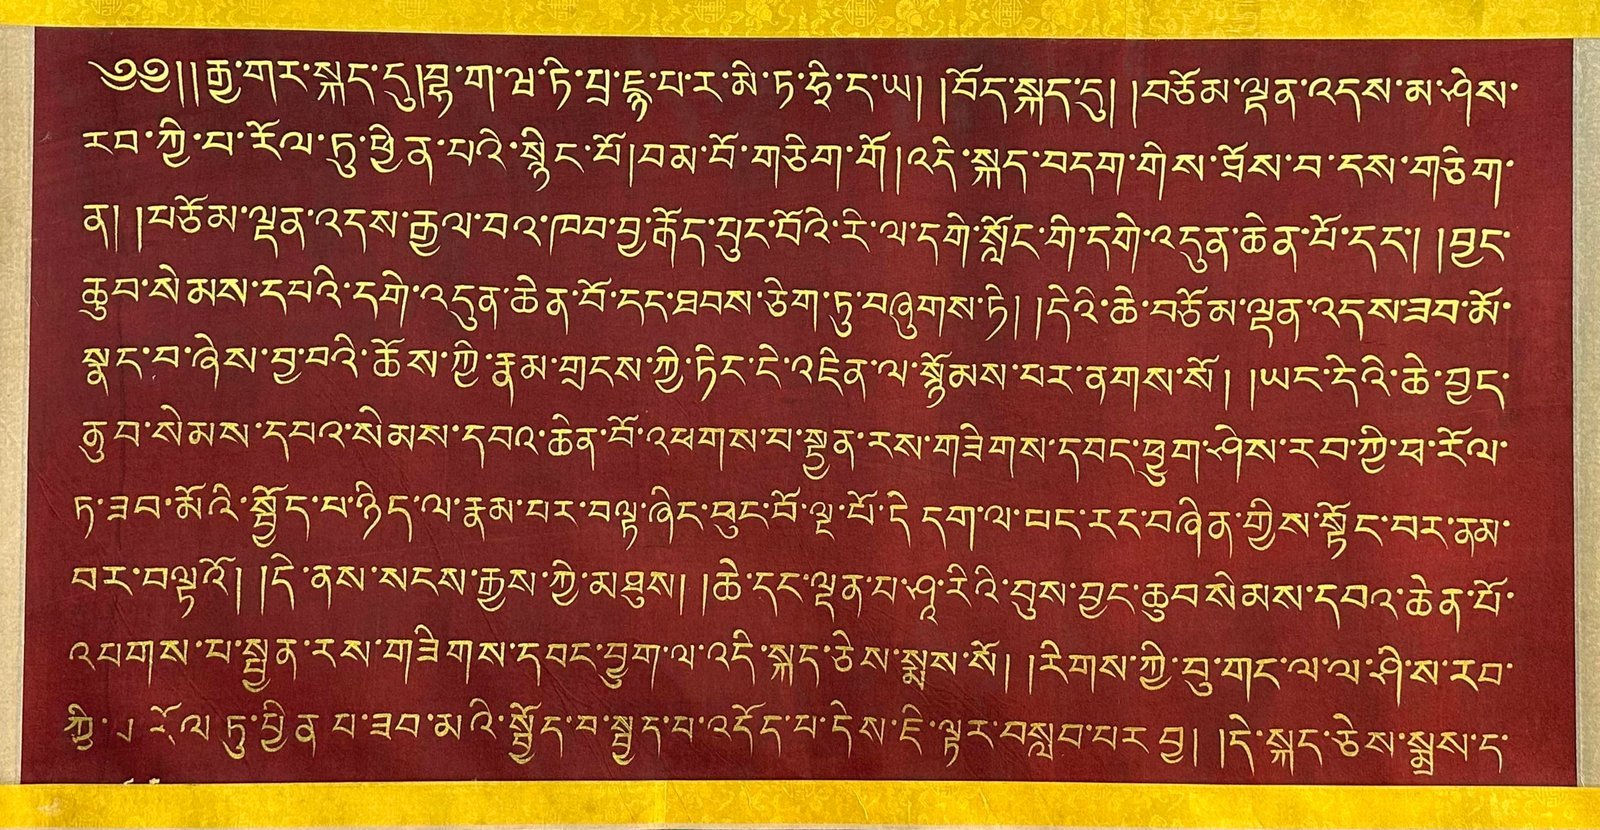 ༄༅།།རྒྱ་གར་སྐད་དུ།བྷ་ག་ཝ་ཏི་པྲ་ཛྙ་པ་ར་མི་ཏ་ཧྲི་ད་ཡ། །བོད་སྐད་དུ། །བཅོམ་ལྡན་འདས་མ་ཤེས་
རབ་ཀྱི་པ་རོལ་ཏུ་ཕྱིན་པའི་སྙིང་པོ།བམ་པོ་གཅིག་གོ།འདི་སྐད་བདག་གིས་ཐོས་པ་དས་གཅིག་
ན། །བཅོམ་ལྡན་འདས་རྒྱལ་བའ་ཁབ་བྱ་རྒོད་ཕུང་པོའི་རི་ལ་དགེ་སློང་གི་དགེ་འདུན་ཆེན་པོ་དང་། །བྱང་
ཆུབ་སེམས་དཔའི་དགེ་འདུན་ཆེན་པོ་དང་ཐབས་ཅིག་ཏུ་བཞུགས་ཏེ། །དེའི་ཆེ་བཅོམ་ལྡན་འདས་ཟབ་མོ་
སྣང་བ་ཞེས་བྱ་བའི་ཆོས་ཀྱི་རྣམ་གྲངས་ཀྱི་ཏིང་ངེ་འཛིན་ལ་སྙོམས་པར་ནགས་སོ། །ཡང་དེའི་ཆེ་བྱང་
ཆུབ་སེམས་དཔའ་སེམས་དཔའ་ཆེན་པོ་འཕགས་པ་སྤྱན་རས་གཟིགས་དབང་ཕྱུག་ཤེས་རབ་ཀྱི་ཕ་རོལ་
ཏ་ཟབ་མོའི་སྤྱོད་པ་ཉིད་ལ་རྣམ་པར་བལྟ་ཞིང་ཕུང་པོ་ལྔ་པོ་དེ་དག་ལ་པང་རང་བཞིན་གྱིས་སྟོང་པར་ནམ་
བར་བལྟའོ། །དེ་ནས་སངས་རྒྱས་ཀྱི་མཐུས། །ཆེ་དང་ལྡན་པ་ཤཱ་རིའི་བུས་བྱང་ཆུབ་སེམས་དཔའ་ཆེན་པོ་
འཕགས་པ་སྤྱན་རས་གཟིགས་དབང་ཕྱུག་ལ་འདི་སྐད་ཅེས་སྨས་སོ། །རིགས་ཀྱི་བུ་གང་ལ་ལ་ཤེས་རབ་
ཀྱི་ རོལ་ཏུ་ཕྱིན་པ་ཟབ་མའི་སྤྱོད་པ་སྤྱད་པ་འདོད་པ་དེས་ཇི་ལྟར་བསླབ་པར་བྱ། །དེ་སྐད་ཅེས་སྨྲས་ད་